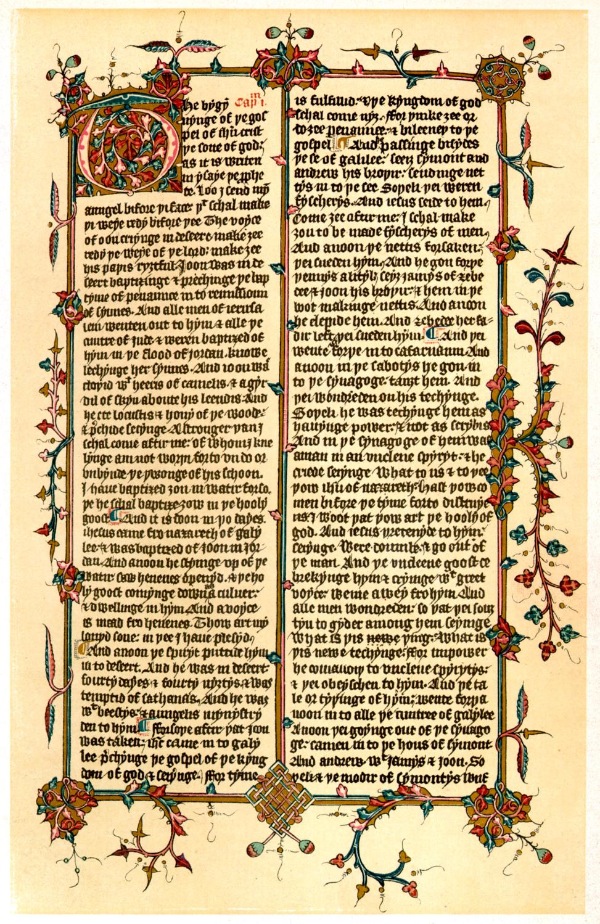 m
Cap i.
he bygyn
nynge of ye gos
pel of ihu crist
ye sone of god:
as it is writen
in ysaye ye pphe
te. Loo I send myn
aungel bifore yi face: yt schal make
yi weye redy bifore yee. The voyce
of oon cryinge in desert: make zee
redy ye weye of ye lord: make zee
his papis ryztful. Joon was in de
seert baptizinge & prechinge ye bap
tyme of penaunce in to remissioun
of synnes. And alle men of ierusa
lem wenten out to hym & alle ye
cuntre of Jude & weren baptized of
hym in ye flood of Jordan. knowe
lechynge her synnes. And Joon was
cloyid wt heeris of camelis & a gyr
dil of skyn aboute his leendis. And
he eet locustis & hony of ye wode:
& pchide seiynge. A stronger yan I
schal come aftir me: of whom I kne
lynge am not woryi forto vn do or
vnbynde ye ywonge of his schoon.
I haue baptized zou in watir forso.
ye he schal baptize zow in ye hooly
goost. And it is doon in yo dayes.
ihesus came fro nazareth of galy
lee & was baptized of Joon in Jor
dan. And anoon he styinge vp of ye
watir saw heuenes openyd. & ye ho
ly goost comynge doun a culuer:
& dwellinge in hym. And a voyce
is maad fro heuenes. Thow art my
louyd sone: in yee I haue plesyd.
And anoon ye spiryt puttide hym
in to desert. And he was in desert
fourty dayes & fourty nyztys & was
temptid of sathanas. And he was
wt beestys: & aungelis mynystri
den to hym. Forsoye aftir yat Joon
was taken: ihc came in to galy
lee pchynge ye gospel of ye kyng
dom of god & seiynge. ffor tyme
is fulfillid. & ye kyngdom of god
schal come nyz. ffor yinke zee or
do zee penaunce. & bileeuey to ye
gospel. And passinge bisydes
ye se of galilee: seez symont and
andrew his broyir: sendinge net
tys in to ye see Soyeli yei weren
fyscherys. And iesus seide to hem.
Come zee aftir me: I schal make
zou to be made fyscherys of men.
And anoon ye nettis forsaken:
yei sueden hym. And he gon forye
yennys a lityl: seez Jamys of zebe
dee & Joon his broyir: & hem in ye
boot makinge nettis. And anoon
he clepide hem. And zebedee her fa
dir left: yei sueden hym. And yei
wente forye in to cafarnaum. And
anoon in ye sabotys he gon in
to ye synagoge: tauzt hem. And
yei wondreden on his techynge.
Soyeli he was techynge hem as
hauynge power: & not as scrybis
And in ye synagoge of hem was
a man in an vnclene spyryt. & he
criede seiynge What to us & to yee
yow ihu of nazareth: hast yow co
men bifore ye tyme forto distruye
us: I woot yat yow art ye hooly of
god. And iesus yretende to hym:
seiynge. Were doumb: & go out of
ye man. And ye vnclene goost to
brekynge hym & cryinge wt greet
voyce: wente awey fro hym. And
alle men wondreden: so yat yei souz
tyn to gyder among hem seiynge.
What is yis newe ying: What is
yis newe techynge: ffor in power
he comaundiy to vnclene spyrytys:
& yei obeyschen to hym. And ye ta
le or tyyinge of hym: wente forya
noon in to alle ye cuntree of galylee
Anoon yei goynge out of ye synago
ge: camen in to ye hous of symont
And andrew: wt Jamys & Joon. So
yeli & ye modir of symontys wiif